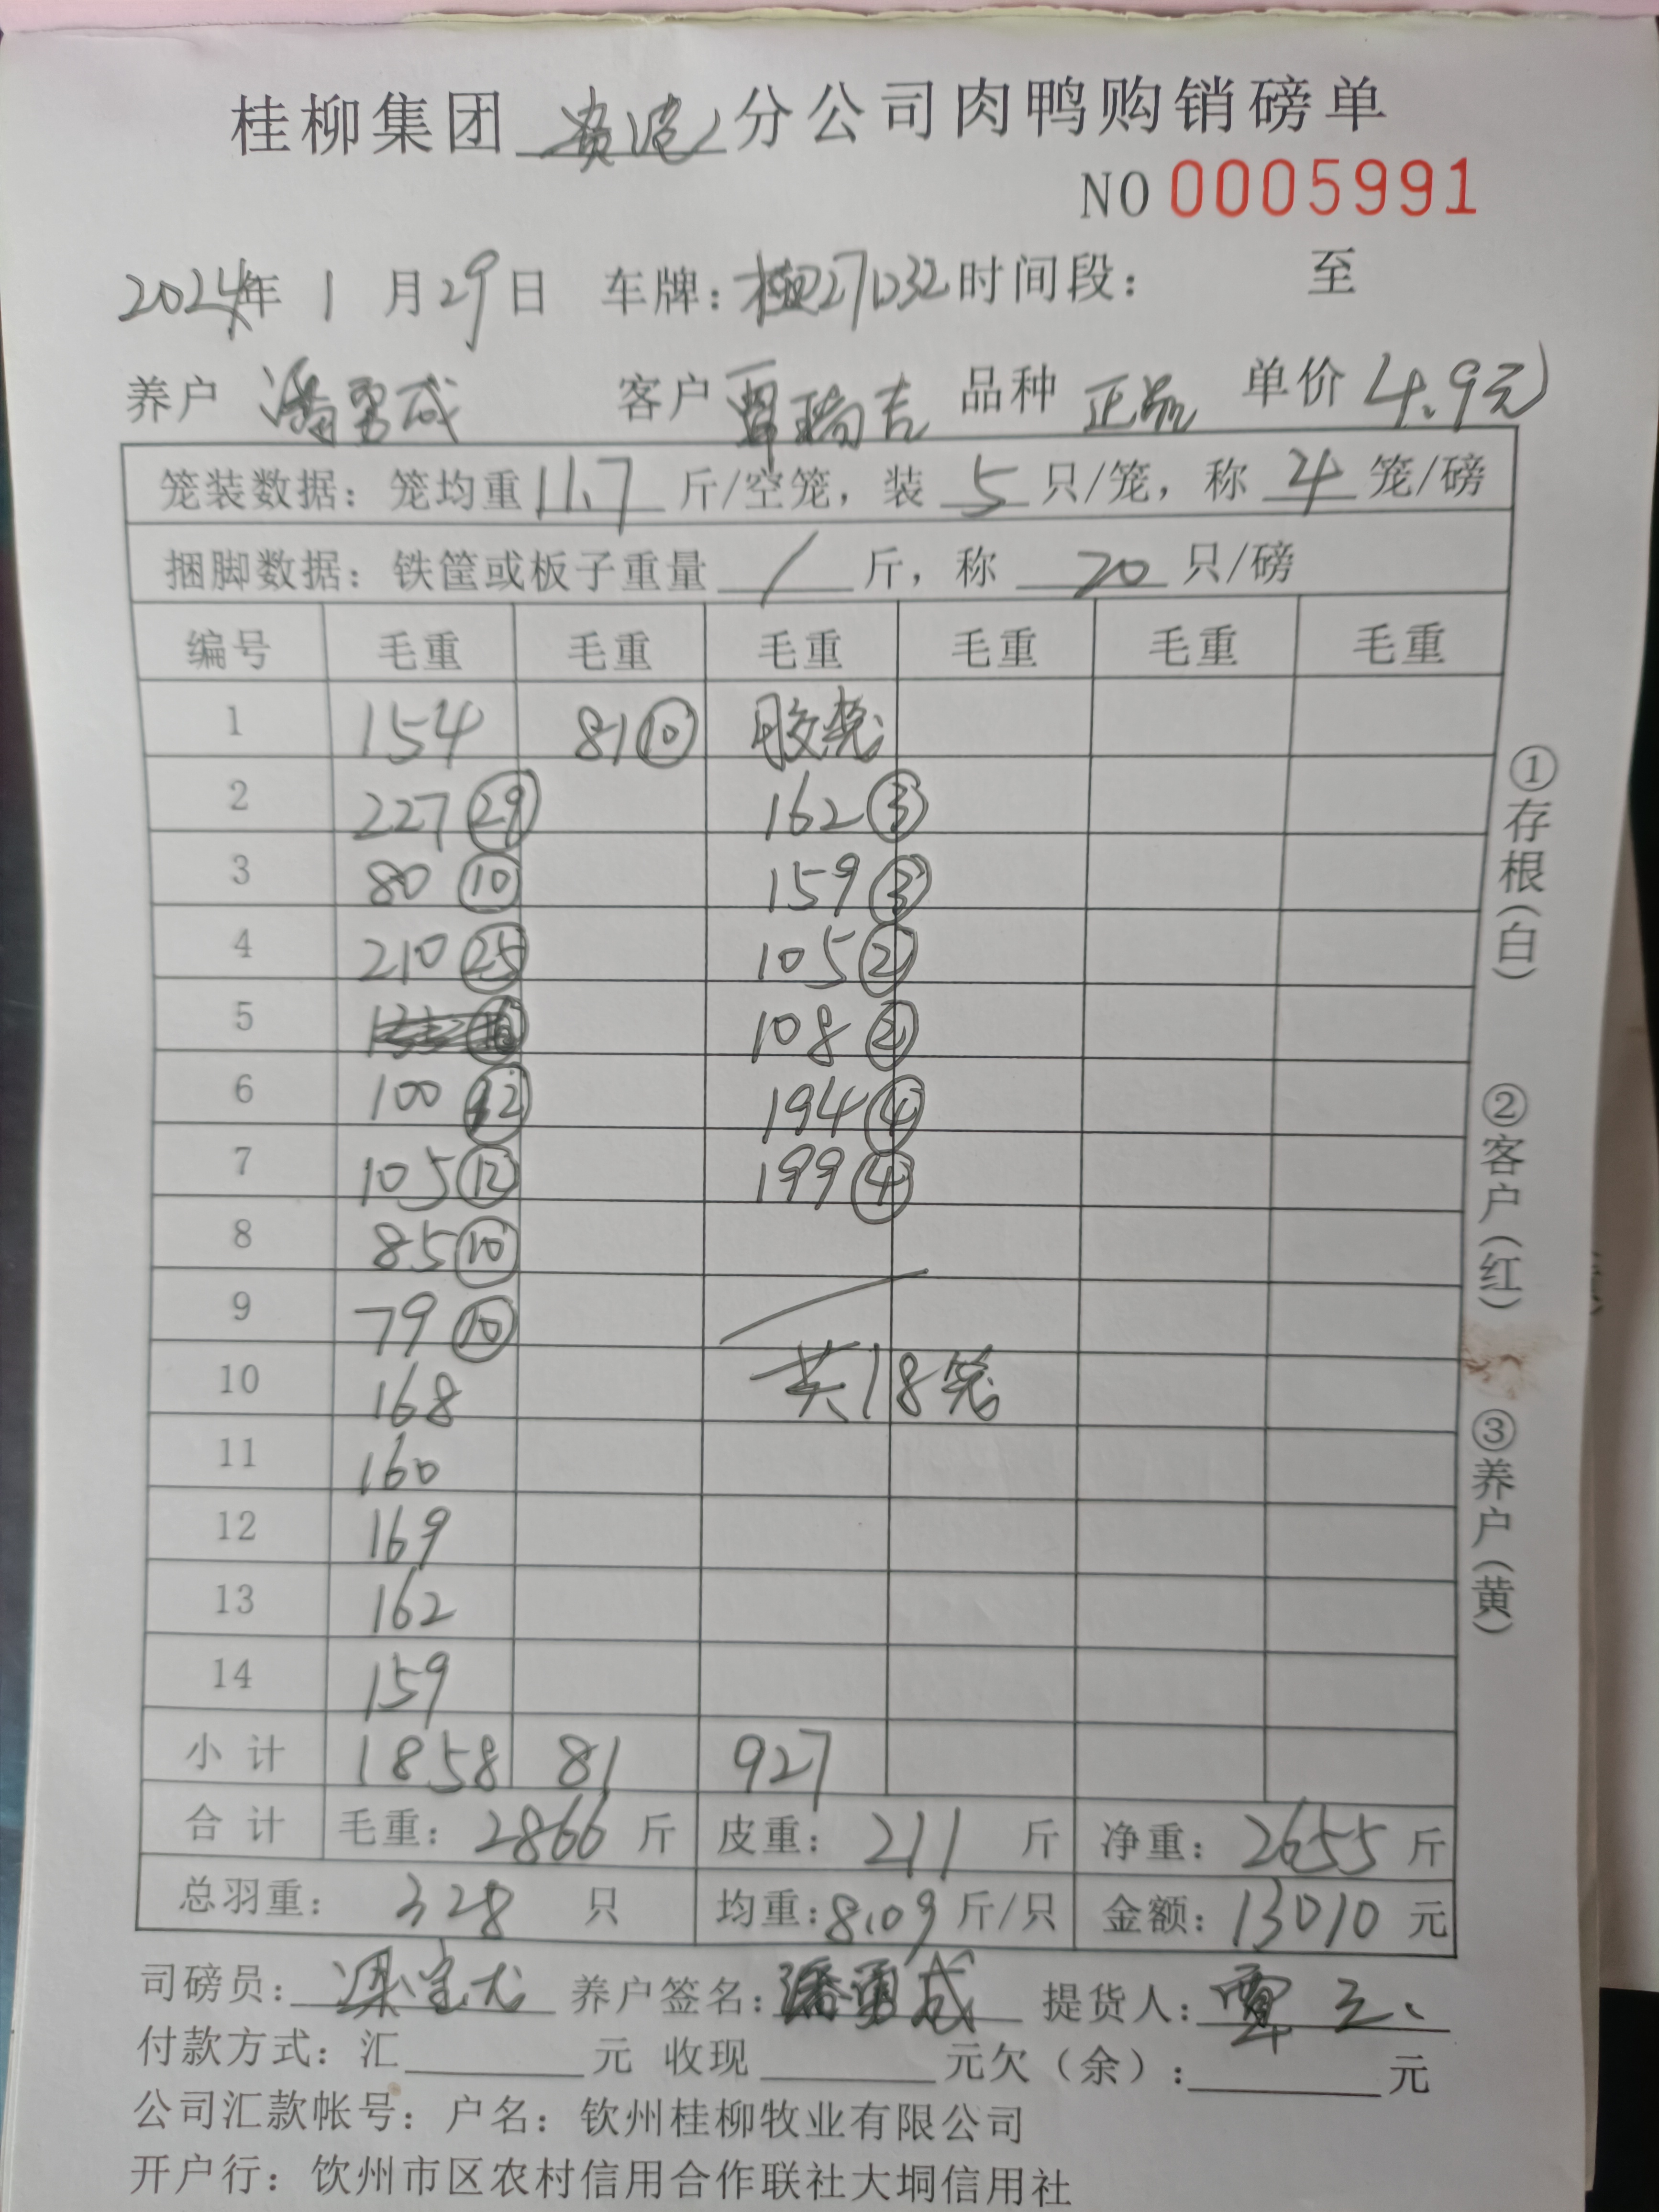 桂柳集团 贵港 分公司肉鸭购销磅单
NO 0005991
2024年 1 月29日 车牌：桂 时间段： 至
养户 潘勇成 客户 覃瑞吉 品种 正品 单价 4.9元
笼装数据：笼均重11.7 斤/空笼，装 5 只/笼，称 4 笼/磅
捆脚数据：铁筐或板子重量 / 斤，称 20 只/磅
编号 毛重 毛重 毛重 毛重 毛重 毛重
1 154 81⑩ 胶笼
2 227㉙ 162③
3 80⑩ 159③
4 210㉕ 105②
5 108②
6 100⑫ 194④
7 105⑫ 199④
8 85⑩
9 79⑩
10 168 共18笼
11 160
12 169
13 162
14 159
小 计 1858 81 927
合 计 毛重：2866 斤 皮重：211 斤 净重：2655 斤
总羽重：328 只 均重：8.09 斤/只 金额：13010 元
司磅员： 养户签名：潘勇成 提货人：覃
付款方式：汇 元 收现 元欠（余）： 元
公司汇款帐号：户名：钦州桂柳牧业有限公司
开户行：钦州市区农村信用合作联社大垌信用社
①存根（白）
②客户（红）
③养户（黄）